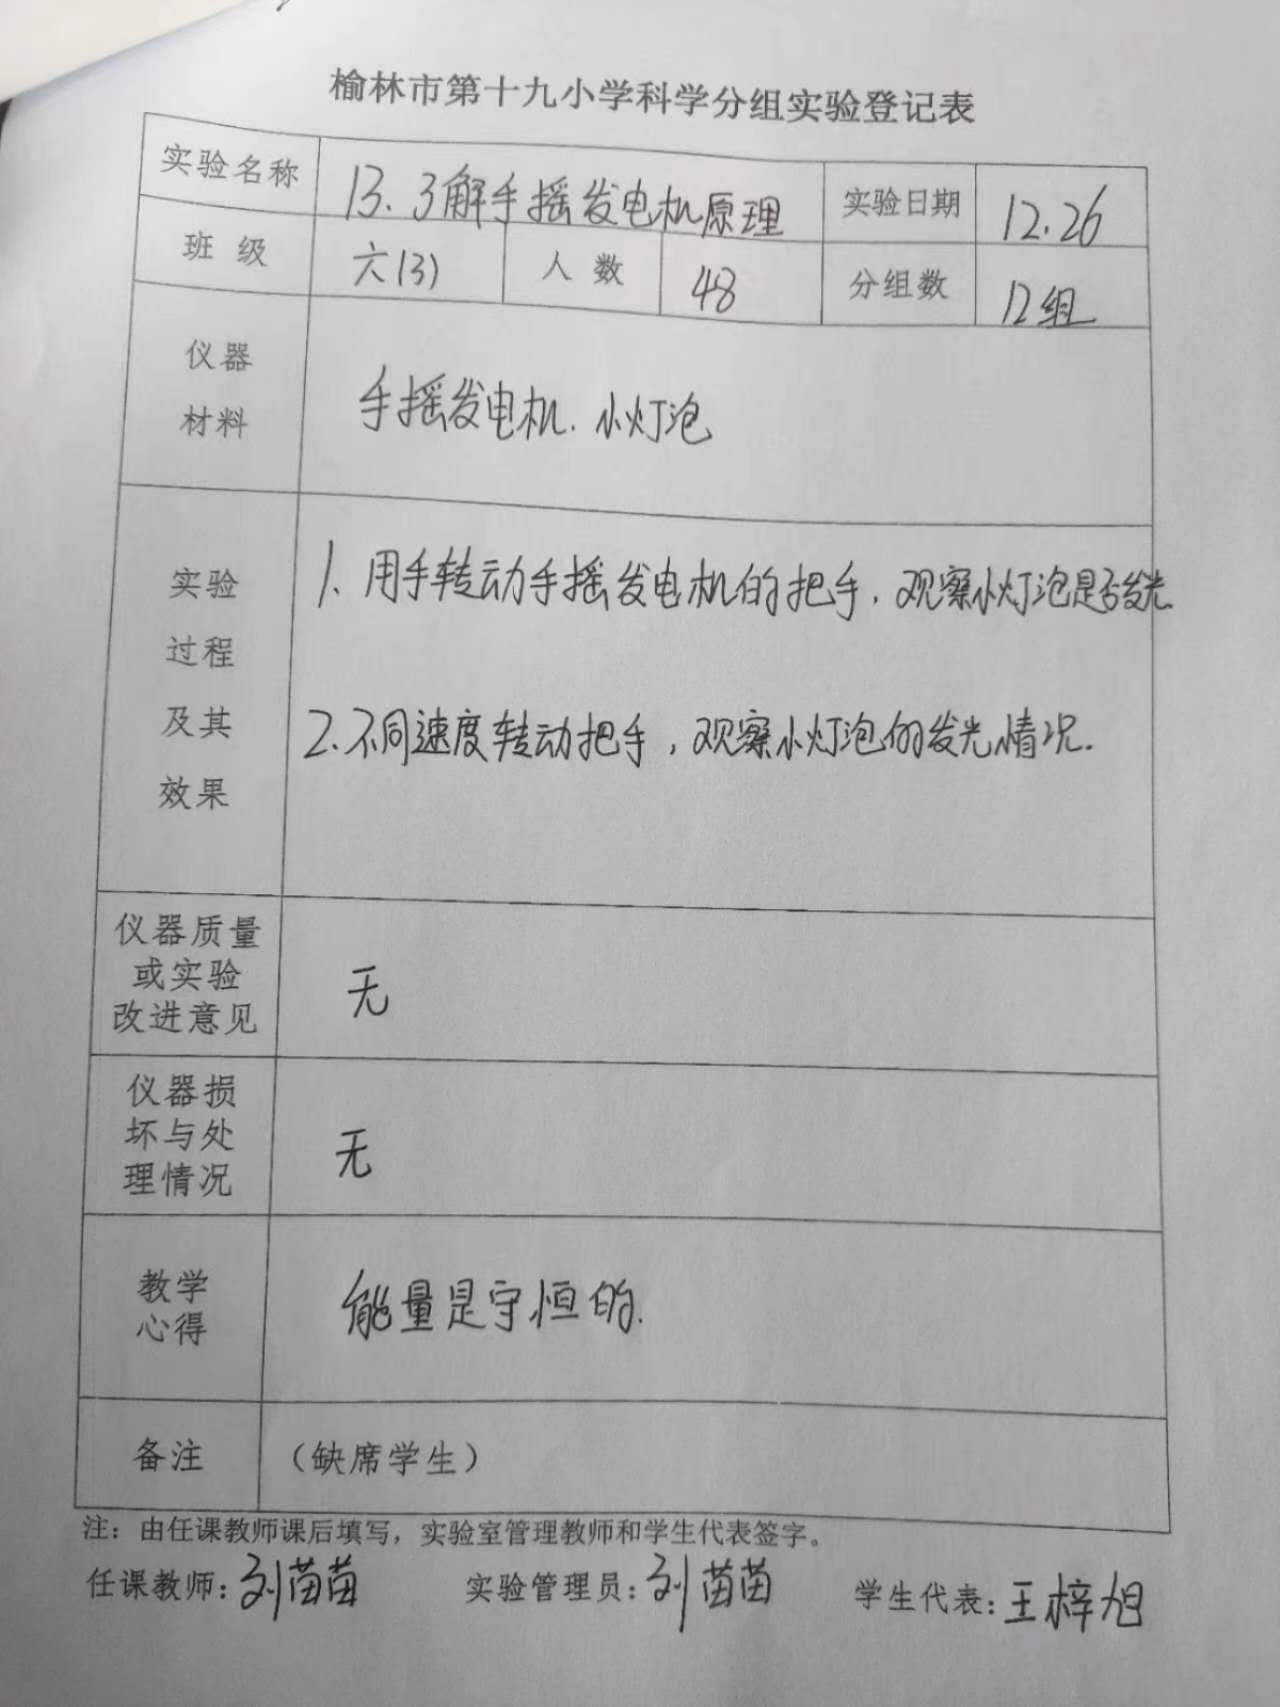 榆林市第十九小学科学分组实验登记表
实验名称 13.了解手摇发电机原理 实验日期 12.26
班 级 六(3) 人 数 48 分组数 12组
仪器
材料
手摇发电机.小灯泡
实验
过程
及其
效果
1.用手转动手摇发电机的把手,观察小灯泡是否发光
2.不同速度转动把手,观察小灯泡的发光情况.
仪器质量
或实验
改进意见
无
仪器损
坏与处
理情况
无
教学
心得
能量是守恒的.
备注 (缺席学生)
注:由任课教师课后填写,实验室管理教师和学生代表签字。
任课教师:刘苗苗 实验管理员:刘苗苗 学生代表:王梓旭